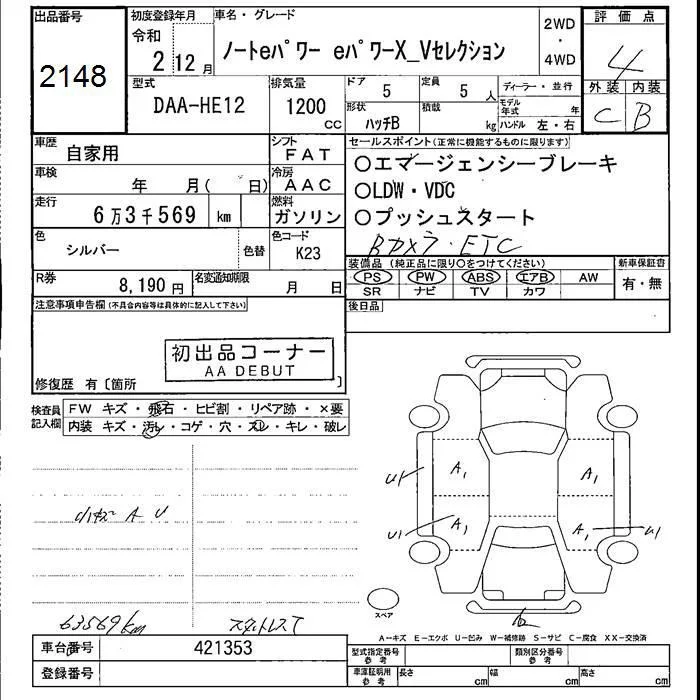 出品番号 初度登録年月 車名・グレード 2WD・4WD 評価点
2148 令和 2 12月 ノートeパワー eパワーX_Vセレクション 4
型式 排気量 ドア 5 定員 5人 ディーラー・並行 外装 内装
DAA-HE12 1200cc 形状 ハッチB 積載 kg モデル年式 年 ハンドル 左・右 C B
車歴 自家用 シフト FAT セールスポイント(正常に機能するものに限ります)
車検 年 月( 日) 冷房 AAC ○エマージェンシーブレーキ
○LDW・VDC
走行 6万3千569 km 燃料 ガソリン ○プッシュスタート
Bカメラ・ETC
色 シルバー 色替 色コード K23
装備品(純正品に限り○をつけてください) 新車保証書
PS PW ABS エアB AW 有・無
SR ナビ TV カワ
R券 8,190円 名変通知期限 月 日
後日品
注意事項申告欄(不具合内容等は具体的に記入して下さい)
初出品コーナー
AA DEBUT
修復歴 有〔箇所 〕
検査員記入欄 FW キズ・飛石・ヒビ割・リペア跡・×要
内装 キズ・汚レ・コゲ・穴・スレ・キレ・破レ
U1 A1 A1
U1 A1 A1 U1
小キズ A U
スペア
63569km スタットレスT
A-キズ E-エクボ U-凹み W-補修跡 S-サビ C-腐食 XX-交換済
車台番号 421353 型式指定番号 参考 類別区分番号 参考
登録番号 車庫証明用 参考 長さ cm 幅 cm 高さ cm